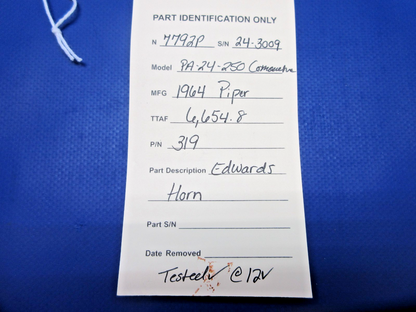 PART IDENTIFICATION ONLY
N 7792P S/N 24-3009
Model PA-24-250 Comanche
MFG 1964 Piper
TTAF 6,654.8
P/N 319
Part Description Edwards
Horn
Part S/N
Date Removed
Tested ✓ @ 12v